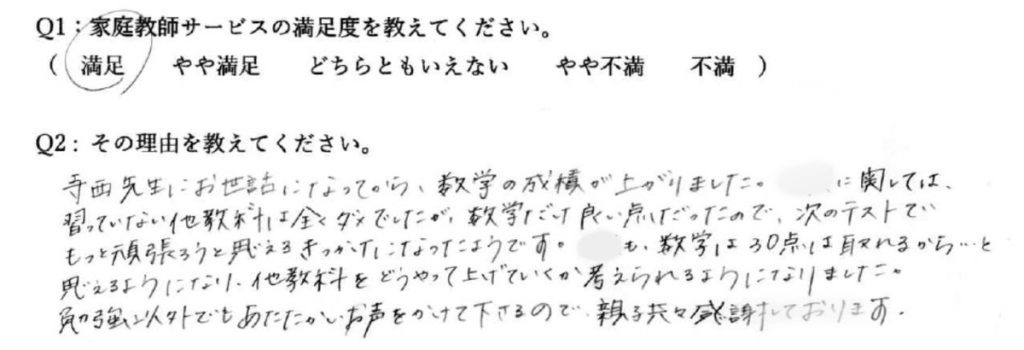 Q1：家庭教師サービスの満足度を教えてください。
（　満足　　やや満足　　どちらともいえない　　やや不満　　不満　）
Q2：その理由を教えてください。
寺西先生にお世話になってから、数学の成績が上がりました。　　に関しては、
習っていない他教科は全くダメでしたが、数学だけ良い点だったので、次のテストで
もっと頑張ろうと思えるきっかけになったようです。　　も、数学は30点は取れるから…と
思えるようになり、他教科をどうやって上げていくか考えられるようになりました。
勉強以外でもあたたかいお声をかけて下さるので、親子共々感謝しております。